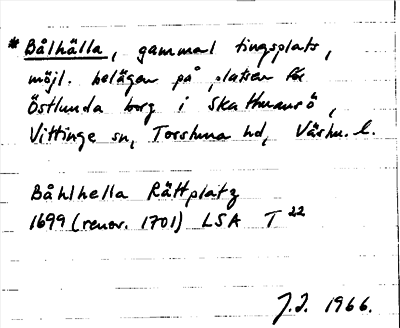 * Bålhälla, gammal tingsplats,
möjl. belägen på platsen för
Östlunda borg i Skattmansö,
Vittinge sn, Torstuna hd, Västm. l.
Båhlhella Rättplatz
1699 (renov. 1701) LSA T 22
J.J. 1966.